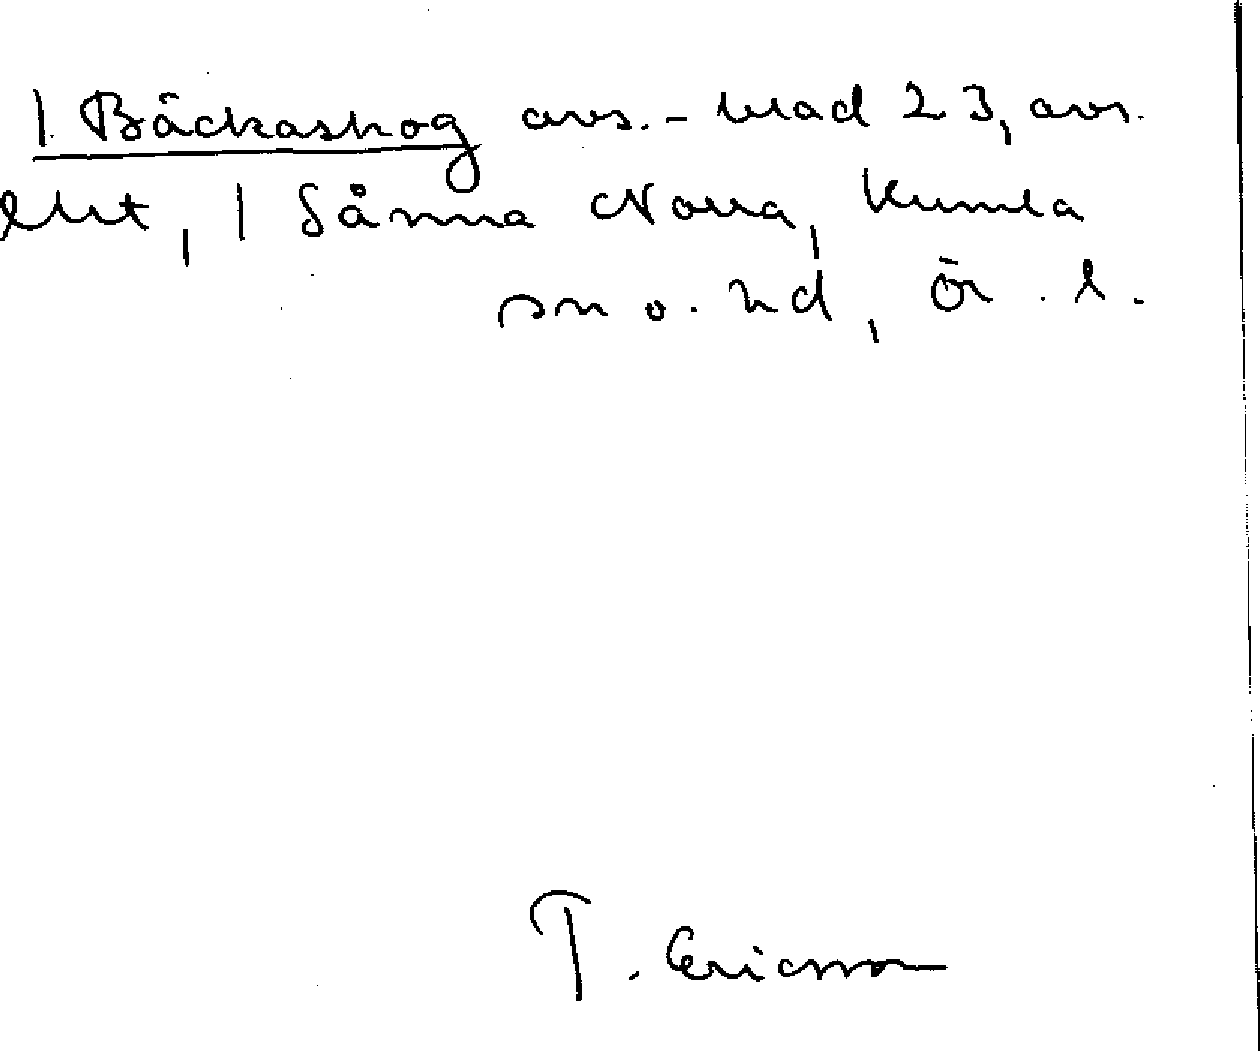 1. Bäckaskog avs. -blad 23, avs.
ekt, 1 Sånna Norra, Kumla
sn o. hd, Ör. l.
T. Ericsson